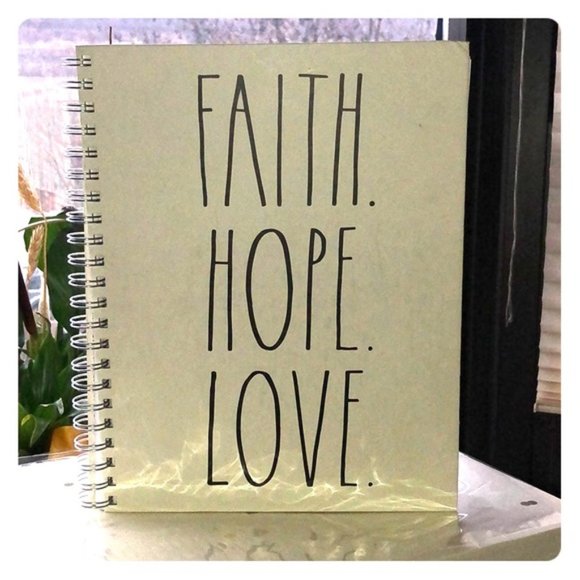 FAITH.
HOPE.
LOVE.